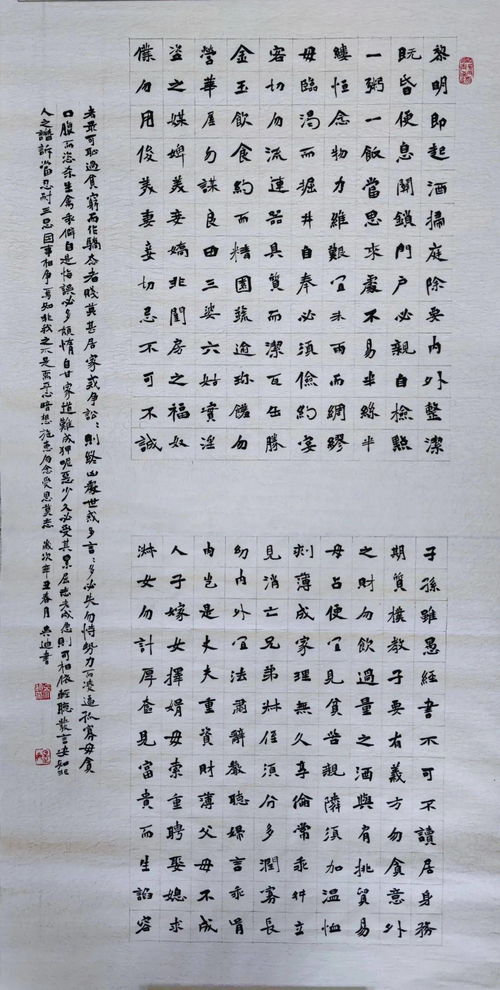 黎明即起酒掃庭除要内外整潔
既昏便息關鎖門户必親自檢點
一粥一飯當思來處不易半絲半
縷恒念物力維艱宜未雨而綢繆
毋臨渴而掘井自奉必須儉約宴
客切勿流連器具質而潔瓦缶勝
金玉飲食約而精園蔬逾珍饈勿
營華屋勿謀良田三婆六姑實淫
盗之媒婢美妾嬌非閨房之福奴
僕勿用俊美妻妾切忌不可不誠
子孫雖愚經書不可不讀居身務
期質樸教子要有義方勿貪意外
之財勿飲過量之酒與有挑貿易
毋占便宜見貧苦親隣須加温恤
刻薄成家理無久享倫常乖舛立
見消亡兄弟叔侄須分多潤寡長
幼内外宜法肅辭嚴聽婦言乖骨
内豈是丈夫重資財薄父母不成
人子嫁女擇婿毋索重聘娶媳求
淑女勿計厚奩見富貴而生諂容
者最可恥遇貧窮而作驕态者賤莫甚居家或争訟〻則終凶處世或多言〻多必失勿恃勢力而凌逼孤寡毋貪
口腹而恣杀生禽乖僻自是悔誤必多頹惰自甘家道難成狎昵惡少久必受其累屈志老成急則可相依輕聽發言安知非
人之譖訴當忍耐三思因事相争焉知非我之不是需平心暗想施惠勿念受恩莫忘 歲次辛丑春月 吴迪書